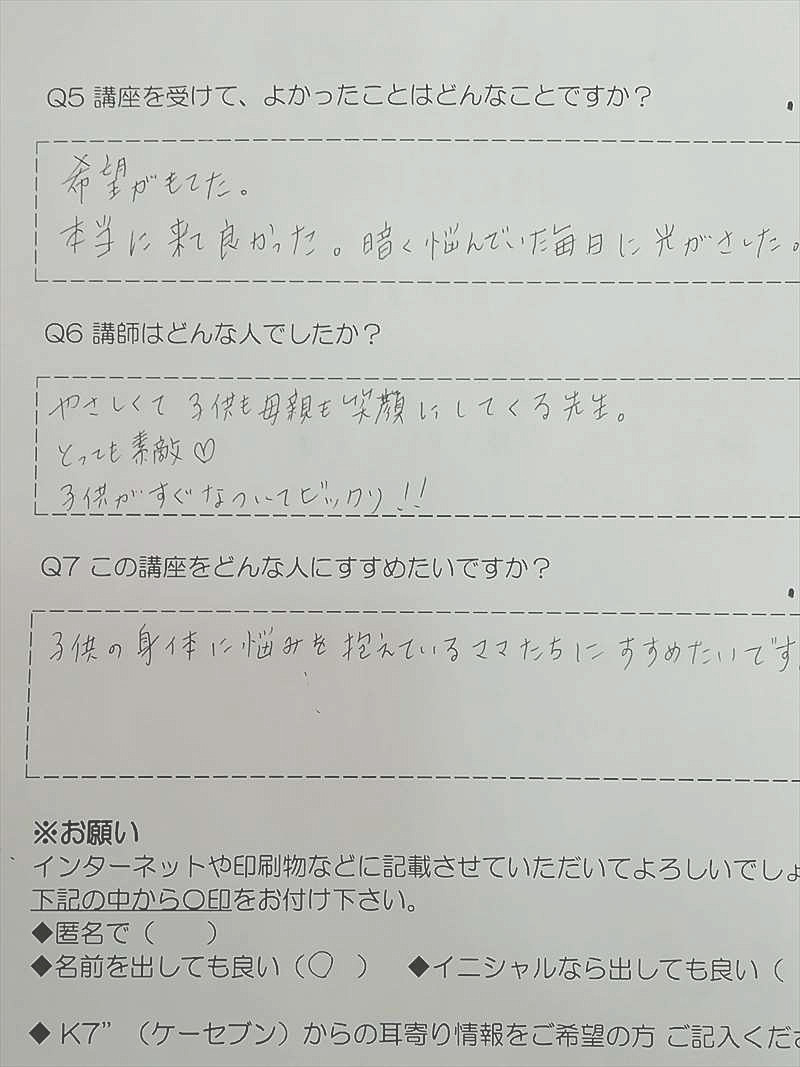 Q5 講座を受けて、よかったことはどんなことですか？
希望がもてた。
本当に来て良かった。暗く悩んでいた毎日に光がさした。
Q6 講師はどんな人でしたか？
やさしくて子供も母親も笑顔にしてくる先生。
とっても素敵♡
子供がすぐなついてビックリ!!
Q7 この講座をどんな人にすすめたいですか？
子供の身体に悩みを抱えているママたちにすすめたいです。
※お願い
インターネットや印刷物などに記載させていただいてよろしいでしょ
下記の中から〇印をお付け下さい。
◆匿名で（　　）
◆名前を出しても良い（〇　）　◆イニシャルなら出しても良い（
◆ K7”（ケーセブン）からの耳寄り情報をご希望の方 ご記入くださ